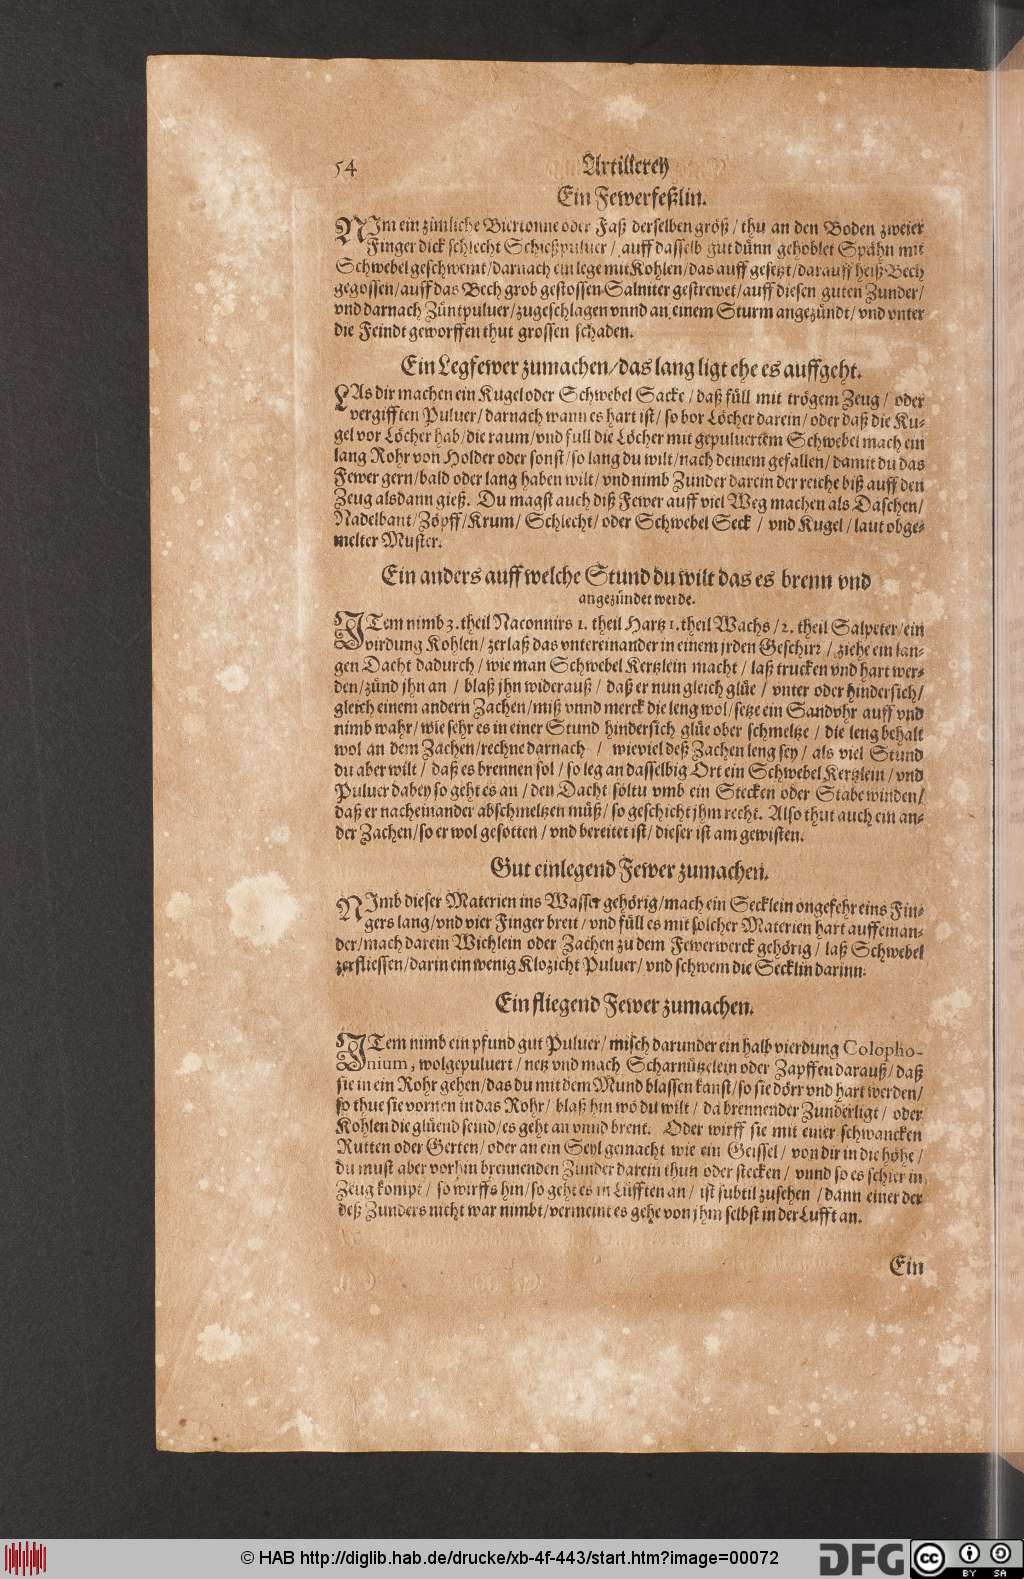 54 Artillerey
Ein Fewerfeßlin.
NIm ein zimliche Biertonne oder Faß derselben größ / thu an den Boden zweier
Finger dick schlecht Schießpuluer / auff dasselb gut dünn gehoblet Spähn mit
Schwebel geschwemt/darnach ein lege mit Kohlen/das auff gesetzt/darauff heiß Bech
gegossen/auff das Bech grob gestossen Salniter gestrewet/auff diesen guten Zunder/
vnd darnach Züntpuluer/zugeschlagen vnnd an einem Sturm angezündt/ vnd vnter
die Feindt geworffen thut grossen schaden.
Ein Legfewer zumachen/das lang ligt ehe es auffgeht.
LAs dir machen ein Kugel oder Schwebel Sacke / daß füll mit trögem Zeug / oder
vergifften Puluer/ darnach wann es hart ist/ so bor Löcher darein/ oder daß die Ku-
gel vor Löcher hab/die raum/vnd full die Löcher mit gepuluertem Schwebel mach ein
lang Rohr von Holder oder sonst/so lang du wilt/nach deinem gefallen/ damit du das
Fewer gern/bald oder lang haben wilt/ vnd nimb Zunder darein der reiche biß auff den
Zeug alsdann gieß. Du magst auch diß Fewer auff viel Weg machen als Daschen/
Nadelbant/Zöpff/Krum/ Schlecht/ oder Schwebel Seck / vnd Kugel / laut obge-
melter Muster.
Ein anders auff welche Stund du wilt das es brenn vnd
angezündet werde.
ITem nimb 3. theil Naconnirs 1. theil Hartz 1. theil Wachs / 2. theil Salpeter/ein
virdung Kohlen/ zerlaß das vntereinander in einem jrden Geschirr / ziehe ein lan-
gen Dacht dadurch / wie man Schwebel Kertzlein macht / laß trucken vnd hart wer-
den/zünd jhn an / blaß jhn widerauß / daß er nun gleich glüe / vnter oder hindersich/
gleich einem andern Zachen/miß vnnd merck die leng wol/setze ein Sandvhr auff vnd
nimb wahr/wie sehr es in einer Stund hindersich glüe ober schmeltze / die leng behalt
wol an dem Zachen/rechne darnach / wieviel deß Zachen leng sey / als viel Stund
du aber wilt / daß es brennen sol / so leg an dasselbig Ort ein Schwebel Kertzlein / vnd
Puluer dabey so geht es an / den Dacht soltu vmb ein Stecken oder Stabe winden/
daß er nacheinander abschmeltzen müß/ so geschicht jhm recht. Also thut auch ein an-
der Zachen/so er wol gesotten / vnd bereitet ist/ dieser ist am gewisten.
Gut einlegend Fewer zumachen.
NImb dieser Materien ins Wasser gehörig/mach ein Secklein ongefehr eins Fin-
gers lang/vnd vier Finger breit / vnd füll es mit solcher Materien hart auffeinan-
der/mach darein Wichlein oder Zachen zu dem Fewerwerck gehörig / laß Schwebel
zerfliessen/darin ein wenig Klozicht Puluer/ vnd schwem die Secklin darinn.
Ein fliegend Fewer zumachen.
ITem nimb ein pfund gut Puluer/ misch darunder ein halb vierdung Colopho-
nium, wolgepuluert / netz vnd mach Scharnützelein oder Zapffen darauß/ daß
sie in ein Rohr gehen/das du mit dem Mund blassen kanst/so sie dörr vnd hart werden/
so thue sie vornen in das Rohr/ blaß hin wo du wilt / da brennender Zunder ligt / oder
Kohlen die glüend seind/es geht an vnnd brent. Oder wirff sie mit einer schwancken
Rutten oder Gerten/ oder an ein Seyl gemacht wie ein Geissel / von dir in die höhe /
du must aber vorhin brennenden Zunder darein thun oder stecken / vnnd so es schier in
Zeug kompt / so wirffs hin/so geht es in Lüfften an / ist subtil zusehen / dann einer der
deß Zunders nicht war nimbt/vermeint es gehe von jhm selbst in der Lufft an.
Ein
© HAB http://diglib.hab.de/drucke/xb-4f-443/start.htm?image=00072
DFG
cc BY SA